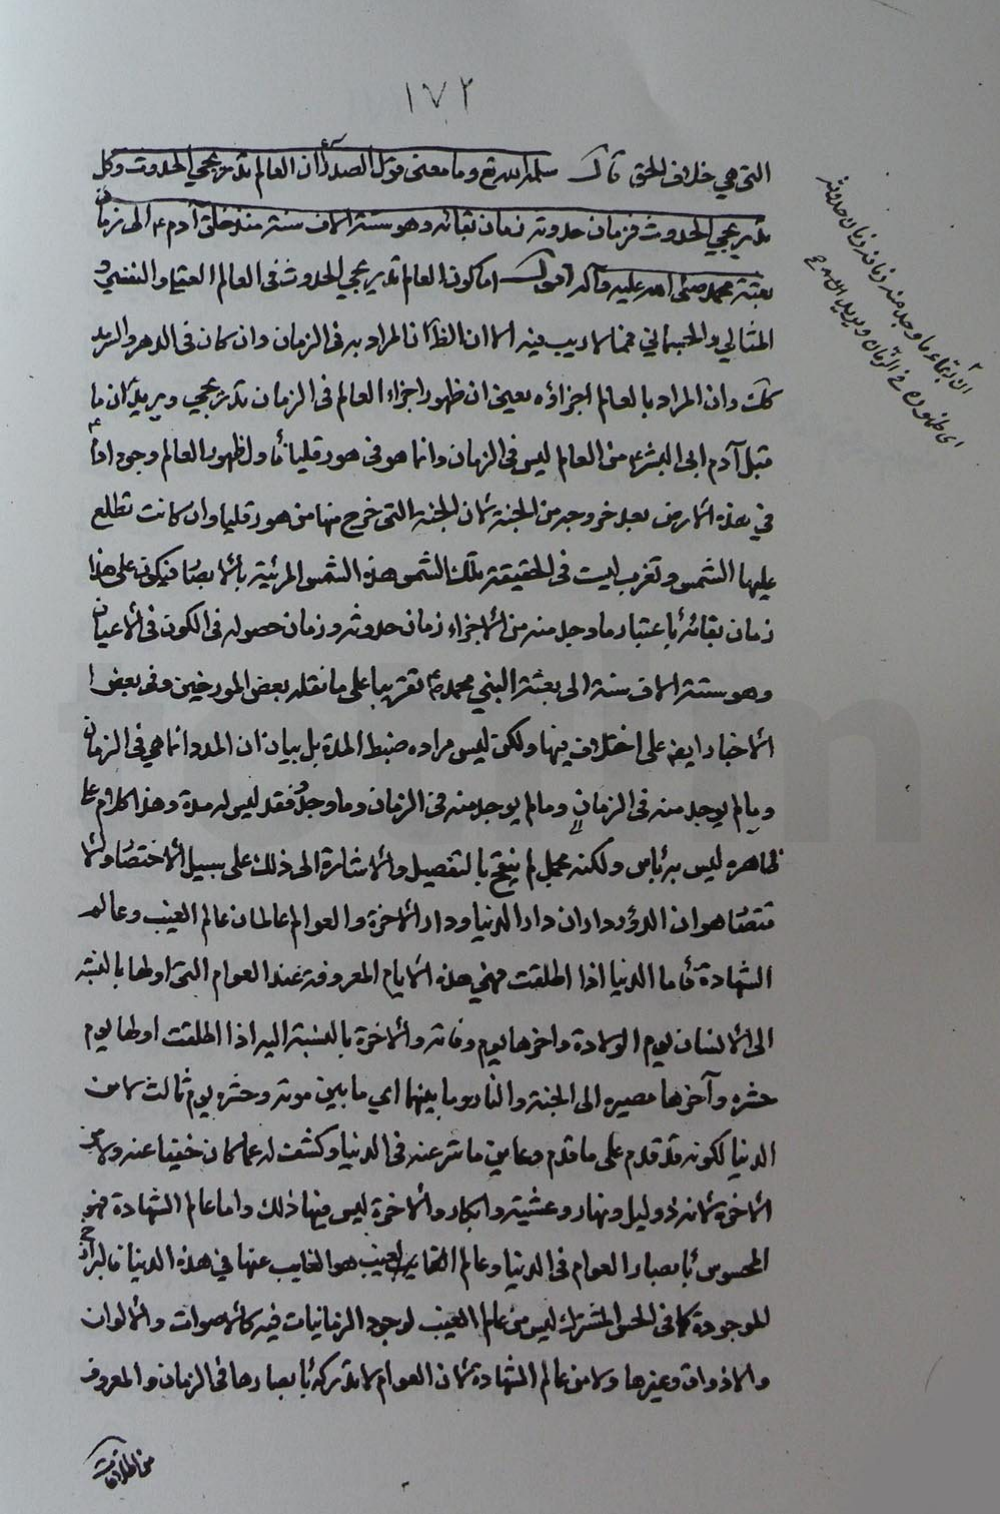 ١٧٢
التي هي خلاف الحق قال سلمه الله تع وما معنى قول الصدرا ان العالم تدريجي الحدوث وكل
تدريجي الحدوث فزمان حدوثه زمان بقائه وهو ستة الاف سنة منذ خلق آدم ع الى زمان
بعثة محمد صلى الله عليه وآله اقول اما كون العالم تدريجي الحدوث في العالم العقلي والنفسي و
المثالي والجسماني فمما لا ريب فيه الا ان الظ ان المراد به في الزمان وان كان في الدهر والسرمد
كك وان المراد بالعالم اجزاؤه يعني ان ظهور اجزاء العالم في الزمان تدريجي ويريد ان ما
قبل آدم ابى البشر ع من العالم ليس في الزمان وانما هو في هورقليا فاول ظهور العالم وجود ادم ع
في هذه الارض بعد خروجه من الجنة لان الجنة التي خرج منها من هورقليا وان كانت تطلع
عليها الشمس وتغرب ليست في الحقيقة بتلك الشمس هذه الشمس المرئية بالابصار فيكون على هذا
زمان بقائه باعتبار ما وجد منه من الاجزاء زمان حدوثه وزمان حصوله في الكون في الاعيان
وهو ستة الاف سنة الى بعثة النبي محمد ص تقريبا على ما نقله بعض المورخين وفي بعض ا
الاخبار ايضا على اختلاف فيها ولكن ليس مراده ضبط المدة بل بيان ان المدد انما هي في الزمان
ومالم يوجد منه في الزمان ومالم يوجد منه في الزمان وما وجد وفقد ليس له مدة وهذا الكلام على
ظاهره ليس به باس ولكنه مجمل لم ينقح بالتفصيل والاشارة الى ذلك على سبيل الاختصار والا
قتصار هو ان الدور داران دار الدنيا ودار الاخرة والعوالم عالمان عالم الغيب وعالم
الشهادة فاما الدنيا اذا اطلقت فهي هذه الايام المعروفة عند العوام التي اولها بالنسبة
الى الانسان يوم الولادة واخرها يوم وفاته والاخرة بالنسبة اليه اذا اطلقت اولها يوم
حشره وآخرها مصيره الى الجنة والنار وما بينهما اي ما بين موته وحشره يوم ثالث لا من
الدنيا لكونه قد قدم على ما قدم وعاين ما ستر عنه في الدنيا وكشف له عما كان خفيا عنه ولا من
الاخرة لانه ذو ليل ونهار وعشية وابكار والاخرة ليس فيها ذلك واما عالم الشهادة فهو
المحسوس بابصار العوام في الدنيا وعالم الغيب هو الغايب عنها في هذه الدنيا فالبرازخ
الموجودة كما في الحس المشترك ليس من عالم الغيب لوجود الزمانيات فيه كالاصوات والالوان
والاذواق وغيرها ولا من عالم الشهادة لان العوام لا تدركه بابصارها في الزمان والمعروف
من اطلاقات
ان بقاء ما وجد منه زمانه زمان حدوثه
اي ظهوره في الزمان ويريد